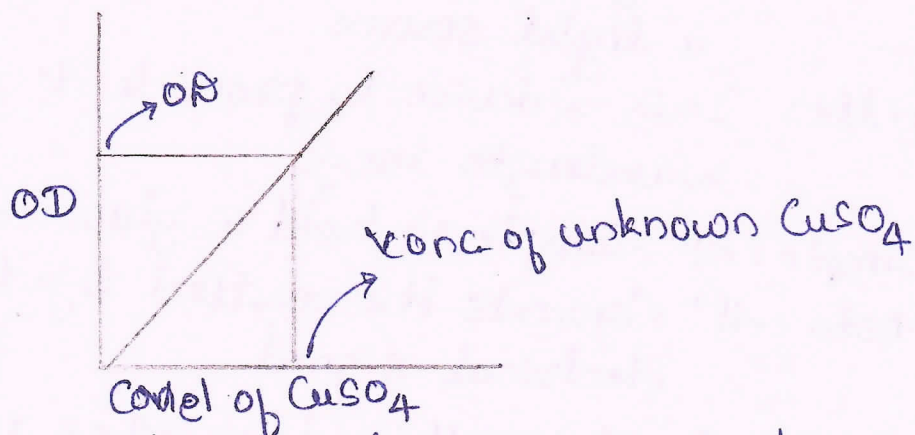 OD
OD
conc of unknown CuSO4
of CuSO4